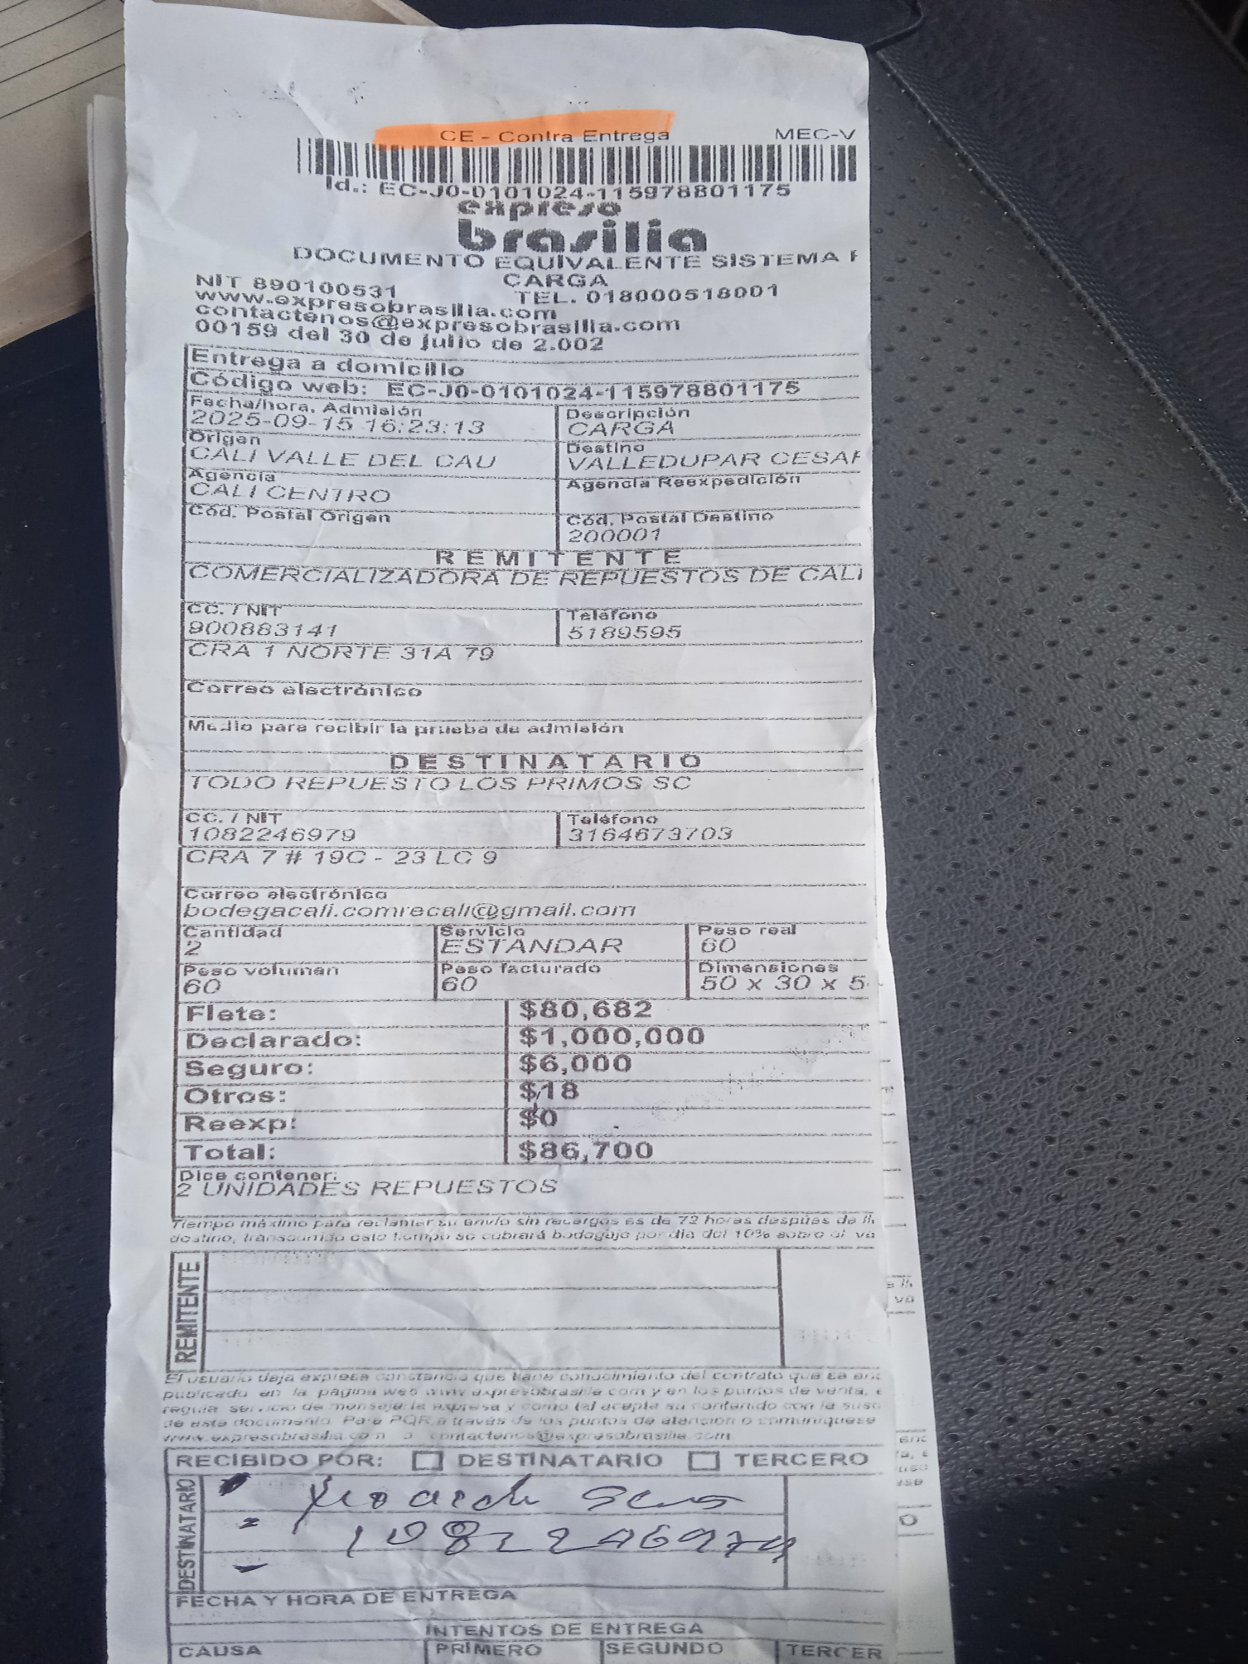 CE - Contra Entrega MEC-V
Id.: EC-J0-0101024-115978801175
expreso
brasilia
DOCUMENTO EQUIVALENTE SISTEMA
CARGA
NIT 890100531 TEL. 018000518001
www.expresobrasilia.com
contactenos@expresobrasilia.com
00159 del 30 de julio de 2.002
Entrega a domicilio
Código web: EC-J0-0101024-115978801175
Fecha/hora. Admisión Descripción
2025-09-15 16:23:13 CARGA
Origen Destino
CALI VALLE DEL CAU VALLEDUPAR CESAR
Agencia Agencia Reexpedición
CALI CENTRO
Cód. Postal Origen Cód. Postal Destino
200001
REMITENTE
COMERCIALIZADORA DE REPUESTOS DE CALI
CC. / NIT Teléfono
900883141 5189595
CRA 1 NORTE 31A 79
Correo electrónico
Medio para recibir la prueba de admisión
DESTINATARIO
TODO REPUESTO LOS PRIMOS SC
CC. / NIT Teléfono
1082246979 3164673703
CRA 7 # 19C - 23 LC 9
Correo electrónico
bodegacali.comrecali@gmail.com
Cantidad Servicio Peso real
2 ESTANDAR 60
Peso volumen Peso facturado Dimensiones
60 60 50 x 30 x 5
Flete: $80,682
Declarado: $1,000,000
Seguro: $6,000
Otros: $18
Reexp: $0
Total: $86,700
Dice contener:
2 UNIDADES REPUESTOS
Tiempo máximo para reclamar su envío sin recargos es de 72 horas después de
destino, transcurrido este tiempo se cobrará bodegaje por día del 10% sobre el va
REMITENTE
El usuario deja expresa constancia que tiene conocimiento del contrato que se enc
publicado en la página web www.expresobrasilia.com y en los puntos de venta,
regula servicio de mensajería expresa y como tal acepta su contenido con la susc
de este documento. Para PQR a través de los puntos de atención o comuniquese
www.expresobrasilia.com o contactenos@expresobrasilia.com
RECIBIDO POR: DESTINATARIO TERCERO
DESTINATARIO
1082246979
FECHA Y HORA DE ENTREGA
INTENTOS DE ENTREGA
CAUSA PRIMERO SEGUNDO TERCER